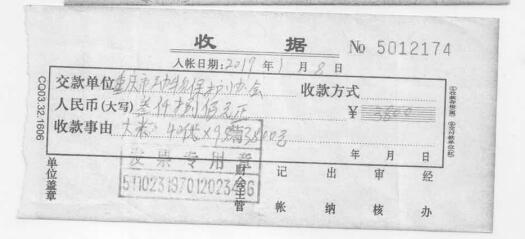 收 据 No 5012174
入帐日期: 2019 年 1 月 8 日
交款单位 重庆市动物保护协会 收款方式
人民币(大写) 叁仟捌佰元正 ¥ 3800
收款事由 大米: 40代×95 3800元
年 月 日
发票专用章
51102319701202
单位盖章 财会主管 记帐 出纳 审核 经办
CQ03.32.1606